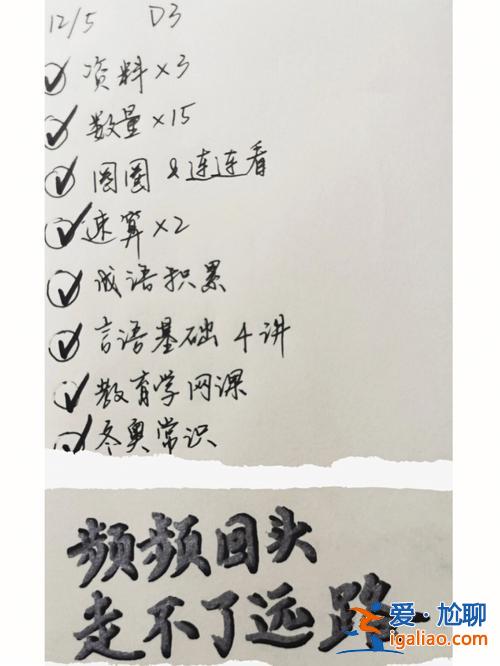 12/5 D3
资料×3
数量×15
圈圈&连连看
速算×2
成语积累
言语基础 4讲
教育学网课
冬奥常识
频频回头
走不了远路
爱·尬聊
igaliao.com